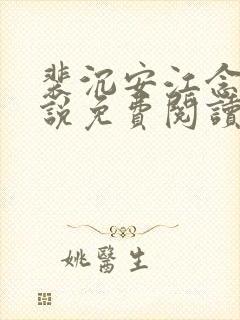 裴沉安江念
說免費閱讀
姚醫生